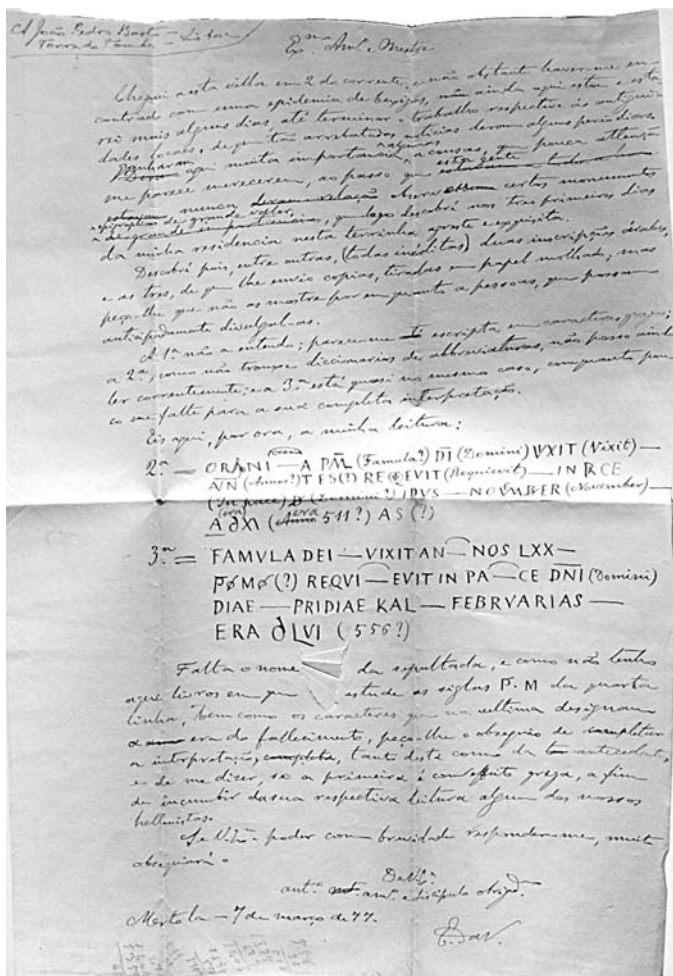 A João Pedro Basto — Lisboa
Torre do Tombo —
Ex.mo Am.o e Mestre
Cheguei a esta villa em 2 do corrente, e não obstante haver-me en-
contrado com uma epidemia de bexigas, ainda aqui estou e esta-
rei mais alguns dias, até terminar o trabalho respectivo ás antigui-
dades locaes, de que tão arrebatadas noticias deram alguns periodicos.
Ganharam aqui muita importancia algumas cousas, que pouca attenção
me parece merecerem, ao passo que esta gente
nunca certos monumentos
epigraphicos de grande valor, que logo descobri nos tres primeiros dias
da minha residencia nesta terrinha agreste e exquisita.
Descobri pois, entre outras, (todas inéditas) duas inscripções árabes,
e as tres, de que lhe envio copias, tiradas em papel molhado; mas
peço-lhe que não as mostre por em quanto a pessoas, que possam
anticipadamente divulgal-as.
A 1.a não a entendo; parece-me escripta em caracteres gregos;
a 2.a, como não trouxe diccionarios de abbreviaturas, não posso ainda
ler correntemente; e a 3.a está quasi no mesmo caso, comquanto pou-
co me falte para a sua completa interpretação.
Eis aqui, por ora, a minha leitura:
2.a — ORANI — A PML (Famula?) DI (Domini) VXIT (Vixit) —
AN (Annos?) T ES (?) REQEVIT (Requievit) — IN RCE
(In pace) D (Domini?) IDVS — NOVMBER (November) —
A ∂XI (era 511?) AS (?)
3.a = FAMVLA DEI — VIXIT AN — NOS LXX —
PØMØ (?) REQVI — EVIT IN PA — CE DNI (Domini)
DIAE — PRIDIAE KAL — FEBRVARIAS —
ERA ∂LVI (556?)
Falta o nome da sepultada, e como não tenho
aqui livros em que estude as siglas P. M da quarta
linha, bem como os caracteres que na ultima designam
a era do fallecimento, peço-lhe o obsequio de completar
a interpretação, tanto desta como da antecedente,
e de me dizer, se a primeira é com effeito grega, a fim
de incumbir da sua respectiva leitura algum dos nossos
hellenistas.
Se V. Ex.a poder com brevidade responder-me, muito
obsequiará o
De V. Ex.a
ant.o am.o e discipulo obrigd.o
Mertola — 7 de março de 77.